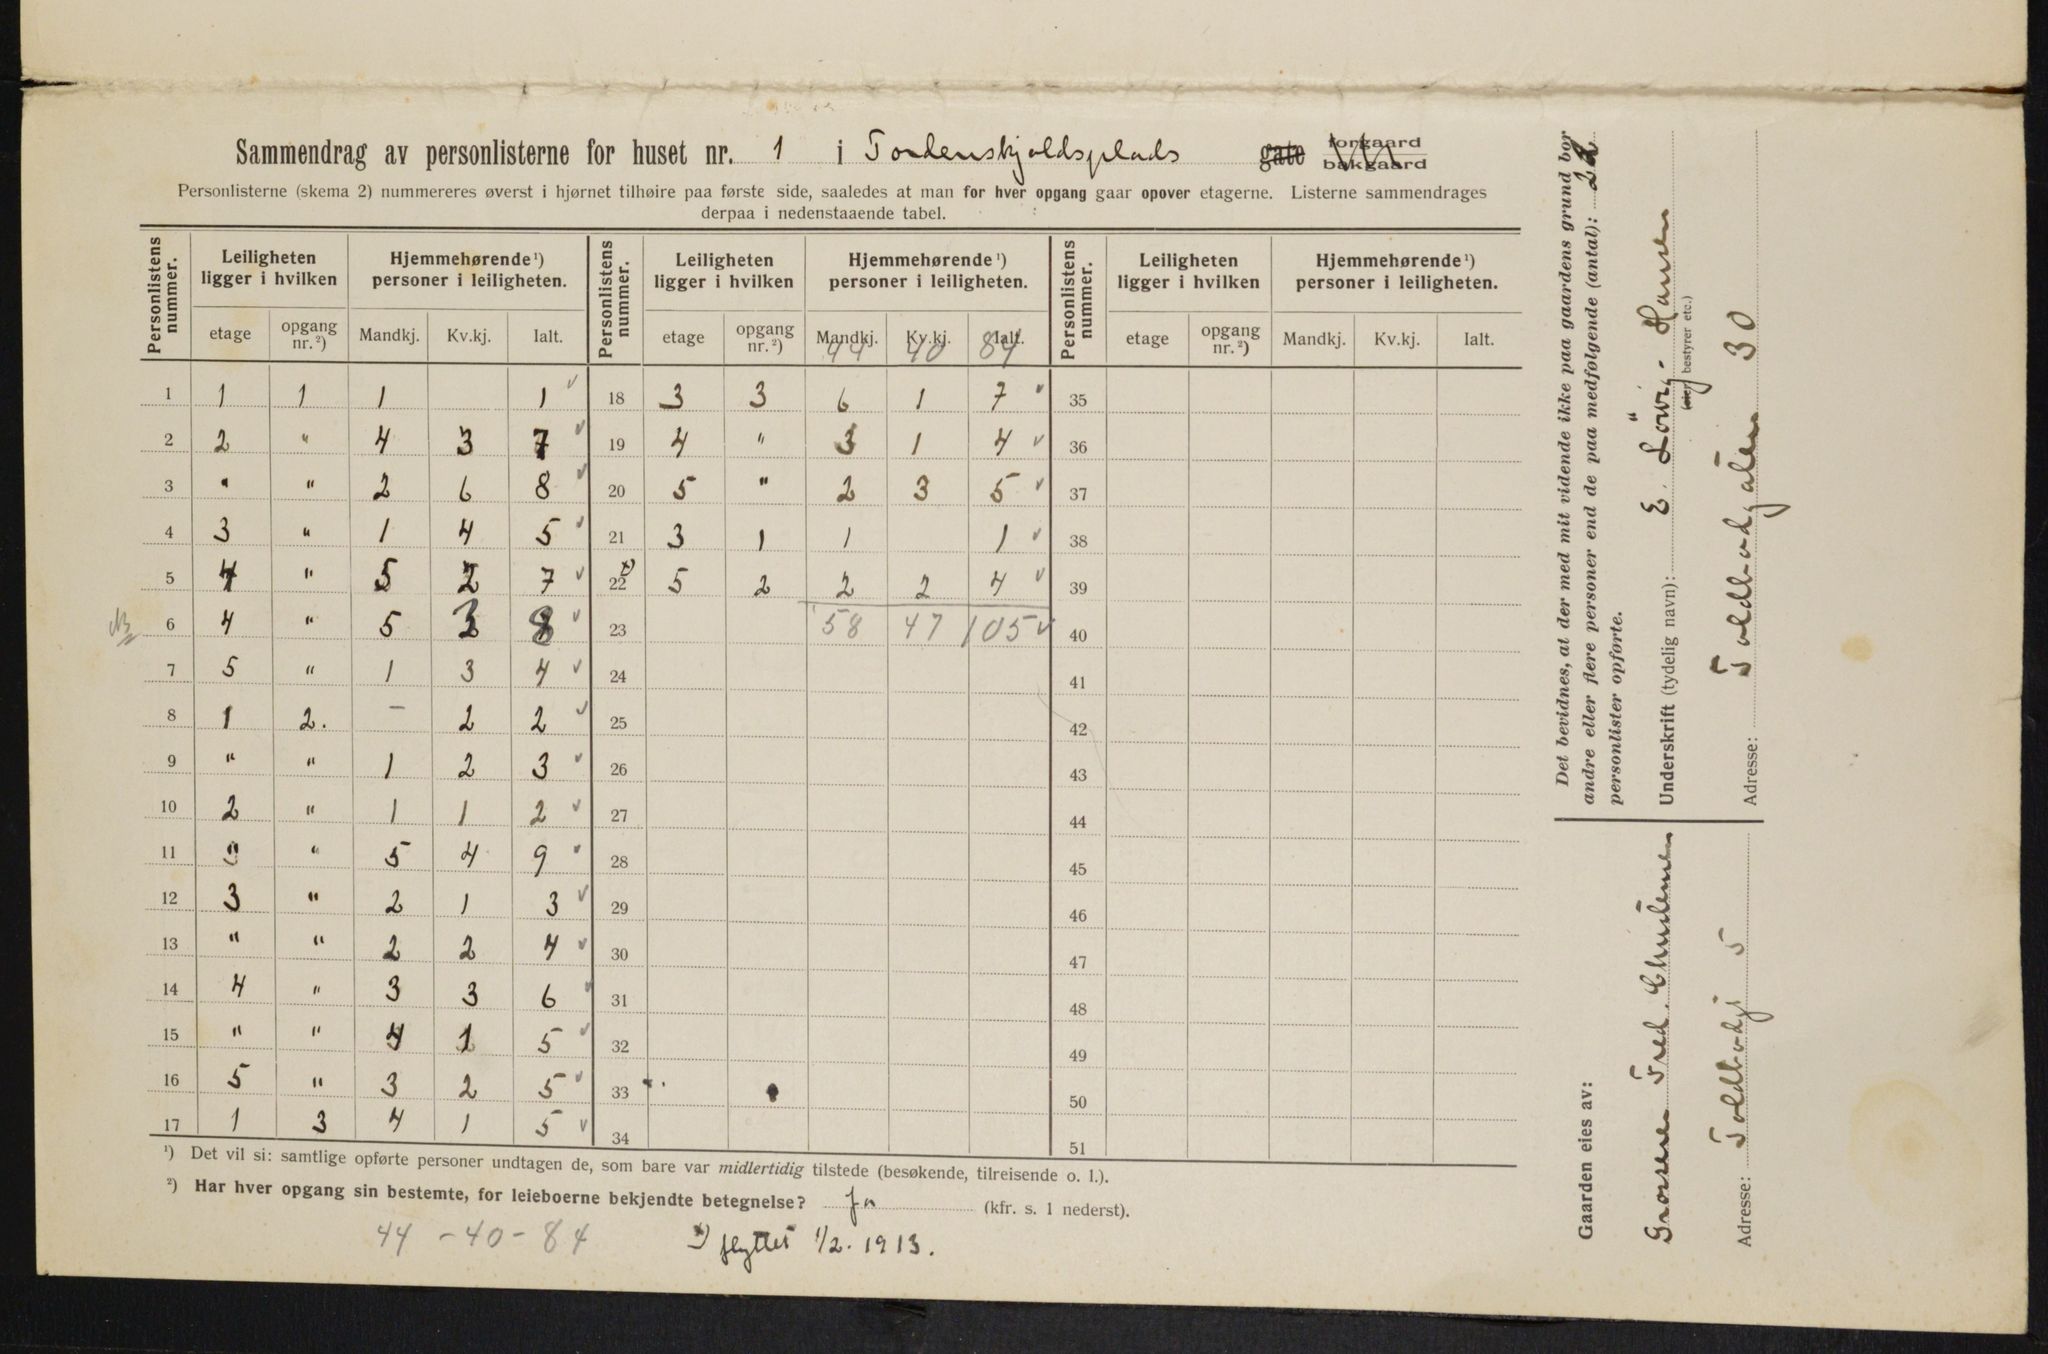 Sammendrag av personlisterne for huset nr. 1 i Tordenskjoldsplads gate forgaard bakgaard
Personlisterne (skema 2) nummereres øverst i hjørnet tilhøire paa første side, saaledes at man for hver opgang gaar opover etagerne. Listerne sammendrages
derpaa i nedenstaaende tabel.
Personlistens nummer. Leiligheten ligger i hvilken Hjemmehørende ¹) personer i leiligheten. Personlistens nummer. Leiligheten ligger i hvilken Hjemmehørende ¹) personer i leiligheten. Personlistens nummer. Leiligheten ligger i hvilken Hjemmehørende ¹) personer i leiligheten.
etage opgang nr. ²) Mandkj. Kv.kj. Ialt. etage opgang nr. ²) Mandkj. Kv.kj. Ialt. etage opgang nr. ²) Mandkj. Kv.kj. Ialt.
44 40 84
1 1 1 1 1 18 3 3 6 1 7 35
2 2 " 4 3 7 19 4 " 3 1 4 36
3 " " 2 6 8 20 5 " 2 3 5 37
4 3 " 1 4 5 21 3 1 1 1 38
5 4 " 5 2 7 22 5 2 2 2 4 39
6 4 " 5 3 8 23 58 47 105 40
7 5 " 1 3 4 24 41
8 1 2. – 2 2 25 42
9 " " 1 2 3 26 43
10 2 " 1 1 2 27 44
11 3 " 5 4 9 28 45
12 3 " 2 1 3 29 46
13 " " 2 2 4 30 47
14 4 " 3 3 6 31 48
15 " " 4 1 5 32 49
16 5 " 3 2 5 33 50
17 1 3 4 1 5 34 51
¹) Det vil si: samtlige opførte personer undtagen de, som bare var midlertidig tilstede (besøkende, tilreisende o. l.).
²) Har hver opgang sin bestemte, for leieboerne bekjendte betegnelse? Ja (kfr. s. 1 nederst).
44 – 40 – 84
x) flyttet 1/2. 1913.
Det bevidnes, at der med mit vidende ikke paa gaardens grund bor
andre eller flere personer end de paa medfølgende (antal): 22
personlister opførte.
Underskrift (tydelig navn): E. Löwig-Hansen
(eier, bestyrer etc.)
Adresse: Toldbodgaten 30
Gaarden eies av:
Grosserer Fred. Christensen
Adresse: Toldbodg 5